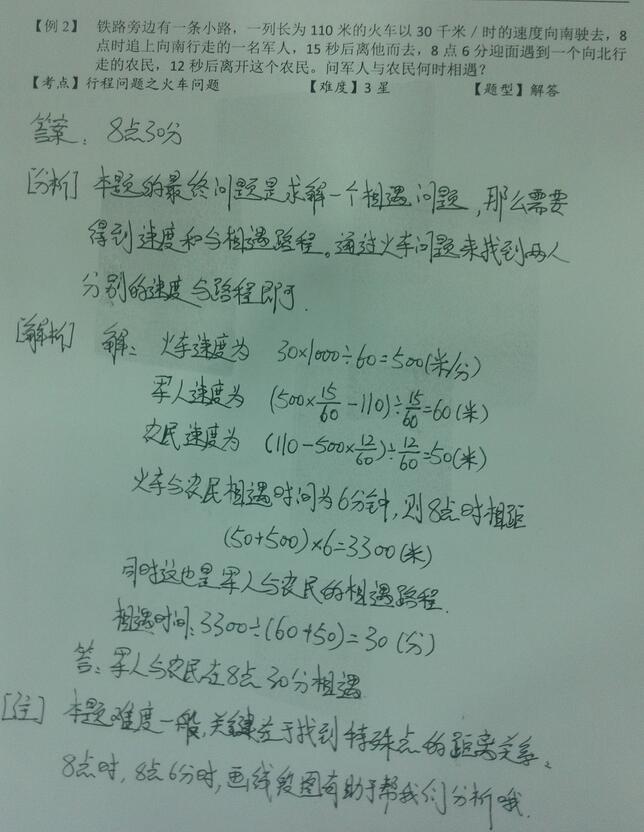 【例 2】 铁路旁边有一条小路，一列长为 110 米的火车以 30 千米／时的速度向南驶去，8
点时追上向南行走的一名军人，15 秒后离他而去，8 点 6 分迎面遇到一个向北行
走的农民，12 秒后离开这个农民。问军人与农民何时相遇？
【考点】行程问题之火车问题 【难度】3 星 【题型】解答
答案：8点30分
[分析] 本题的最终问题是求解一个相遇问题，那么需要
得到速度和与相遇路程。通过火车问题来找到两人
分别的速度与路程即可.
[解析] 解：火车速度为 30×1000÷60=500(米/分)
军人速度为 (500×15/60-110)÷15/60=60(米)
农民速度为 (110-500×12/60)÷12/60=50(米)
火车与农民相遇时间为6分钟，则8点时相距
(50+500)×6=3300(米)
同时这也是军人与农民的相遇路程.
相遇时间：3300÷(60+50)=30(分)
答：军人与农民在8点30分相遇
[注] 本题难度一般，关键在于找到特殊点的距离关系。
8点时，8点6分时，画线段图有助于帮我们分析哦.